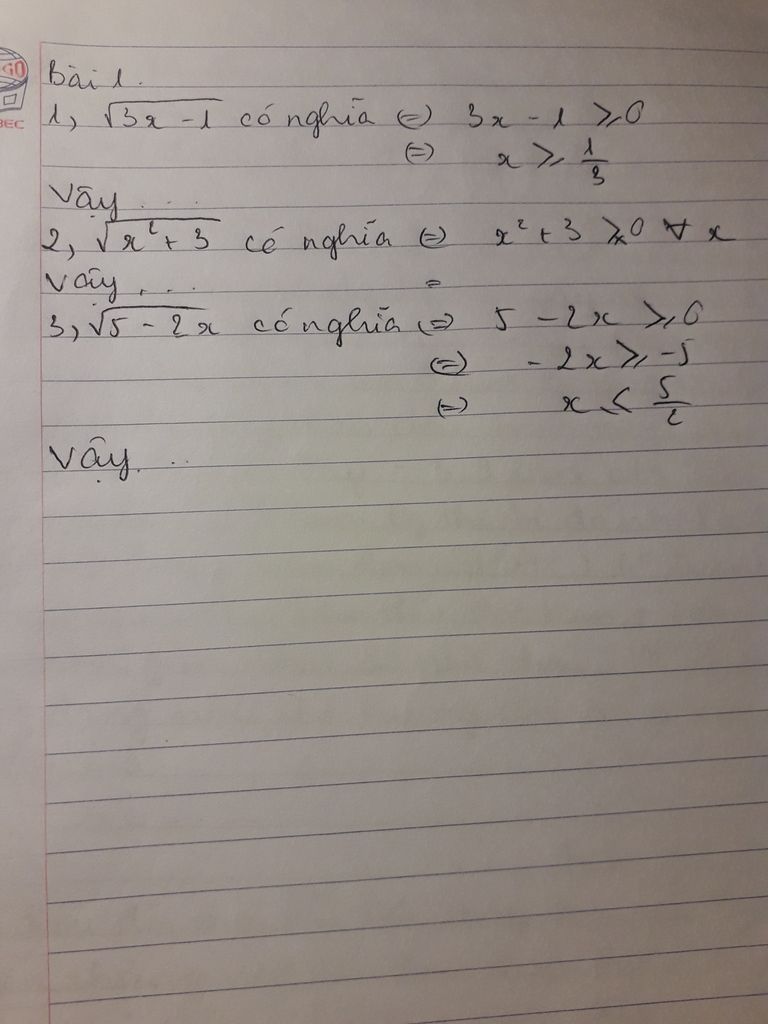 GO
BEC
Bài 1.
1, √3x - 1 có nghĩa ⇔ 3x - 1 ⩾ 0
⇔ x ⩾ 1/3
Vậy ...
2, √x² + 3 có nghĩa ⇔ x² + 3 ⩾ 0 ∀ x
Vậy ... =
3, √5 - 2x có nghĩa ⇔ 5 - 2x ⩾ 0
⇔ - 2x ⩾ -5
⇔ x ⩽ 5/2
Vậy ...